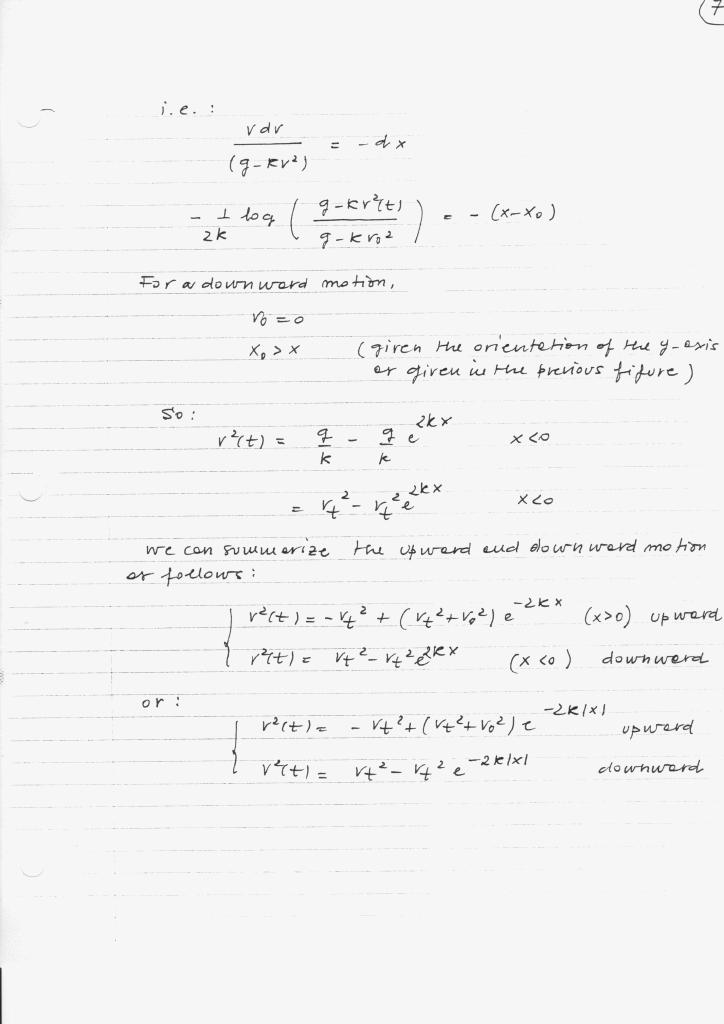 7
i.e. :
v dv / (g-kv²) = - dx
- 1/2k log ( g-kv²(t) / g-kv₀² ) = - (x-x₀)
For a downward motion,
v₀ = 0
x₀ > x (given the orientation of the y-axis
as given in the previous figure)
So:
v²(t) = g/k - g/k e^2kx x<0
= v_t² - v_t² e^2kx x<0
we can summarize the upward and downward motion
as follows:
{ v²(t) = - v_t² + (v_t²+v₀²) e^-2kx (x>0) upward
v²(t) = v_t² - v_t² e^2kx (x<0) downward
or :
{ v²(t) = - v_t² + (v_t²+v₀²) e^-2k|x| upward
v²(t) = v_t² - v_t² e^-2k|x| downward